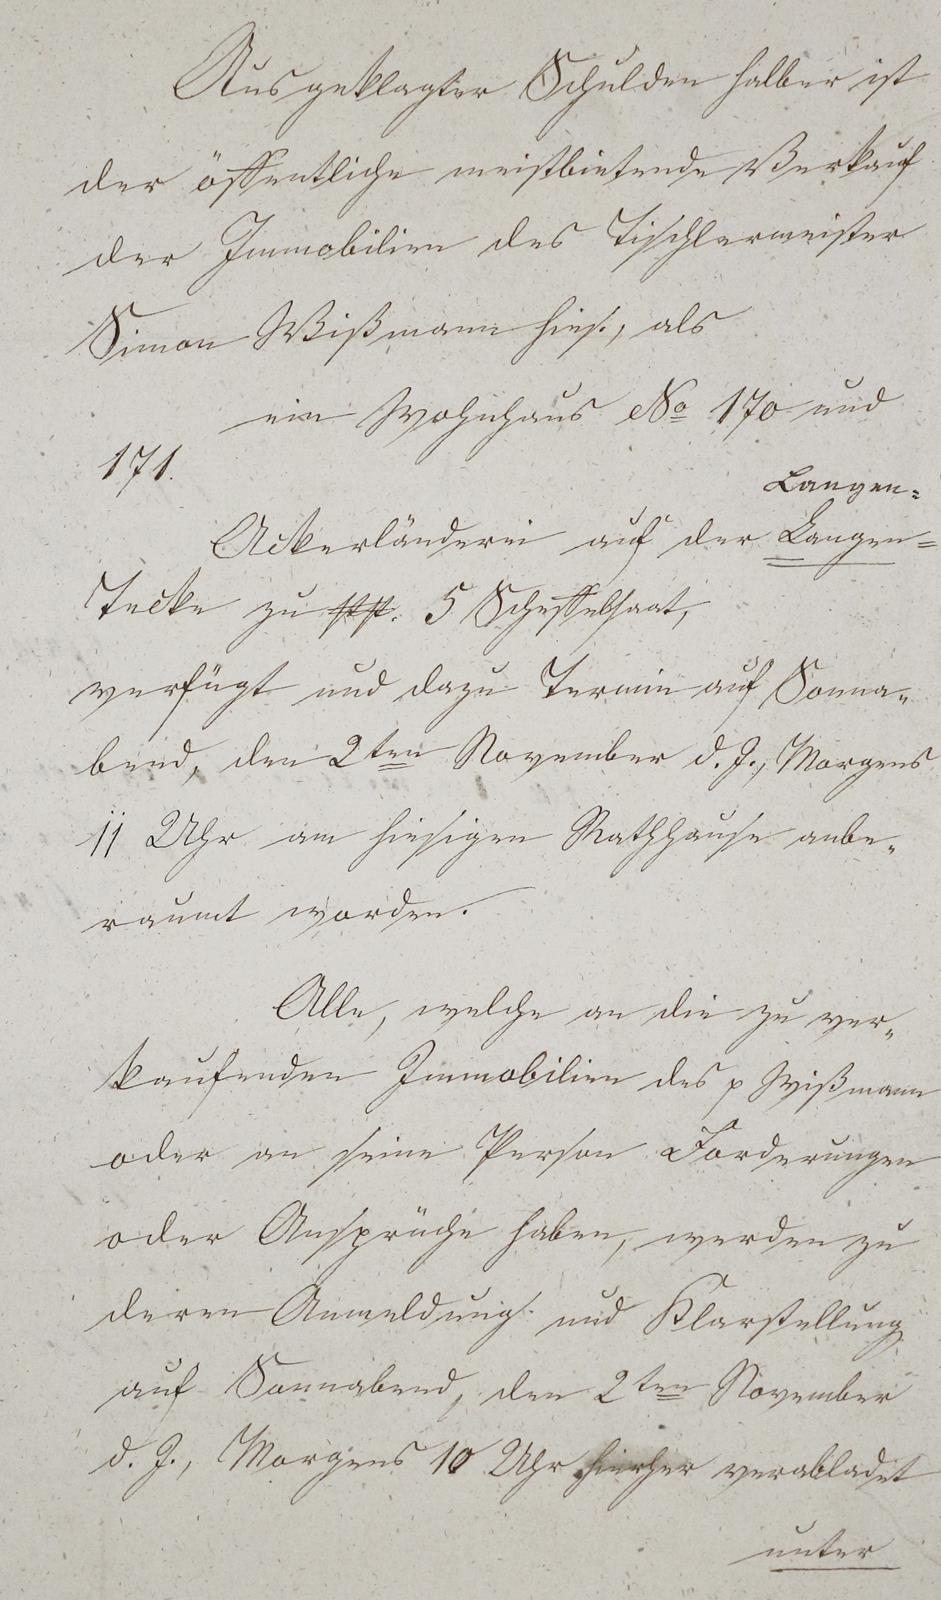 Ausgeklagter Schulden halber ist
der öffentliche meistbietende Verkauf
der Immobilien des Tischlermeister
Simon Wißmann hies., als
ein Wohnhaus No 170 und
171.
Langen=
Ackerländerei auf der Langen=
Tecke zu 5 Scheffelsaat,
verfügt und dazu Termin auf Sonna=
bend, den 2ten November d. J., Morgens
11 Uhr am hiesigen Rathhause anbe=
raumt worden.
Alle, welche an die zu ver=
kaufenden Immobilien des p Wißmann
oder an seine Person Forderungen
oder Ansprüche haben, werden zu
deren Anmeldung und Klarstellung
auf Sonnabend, den 2ten November
d. J., Morgens 10 Uhr hierher verabladet
unter